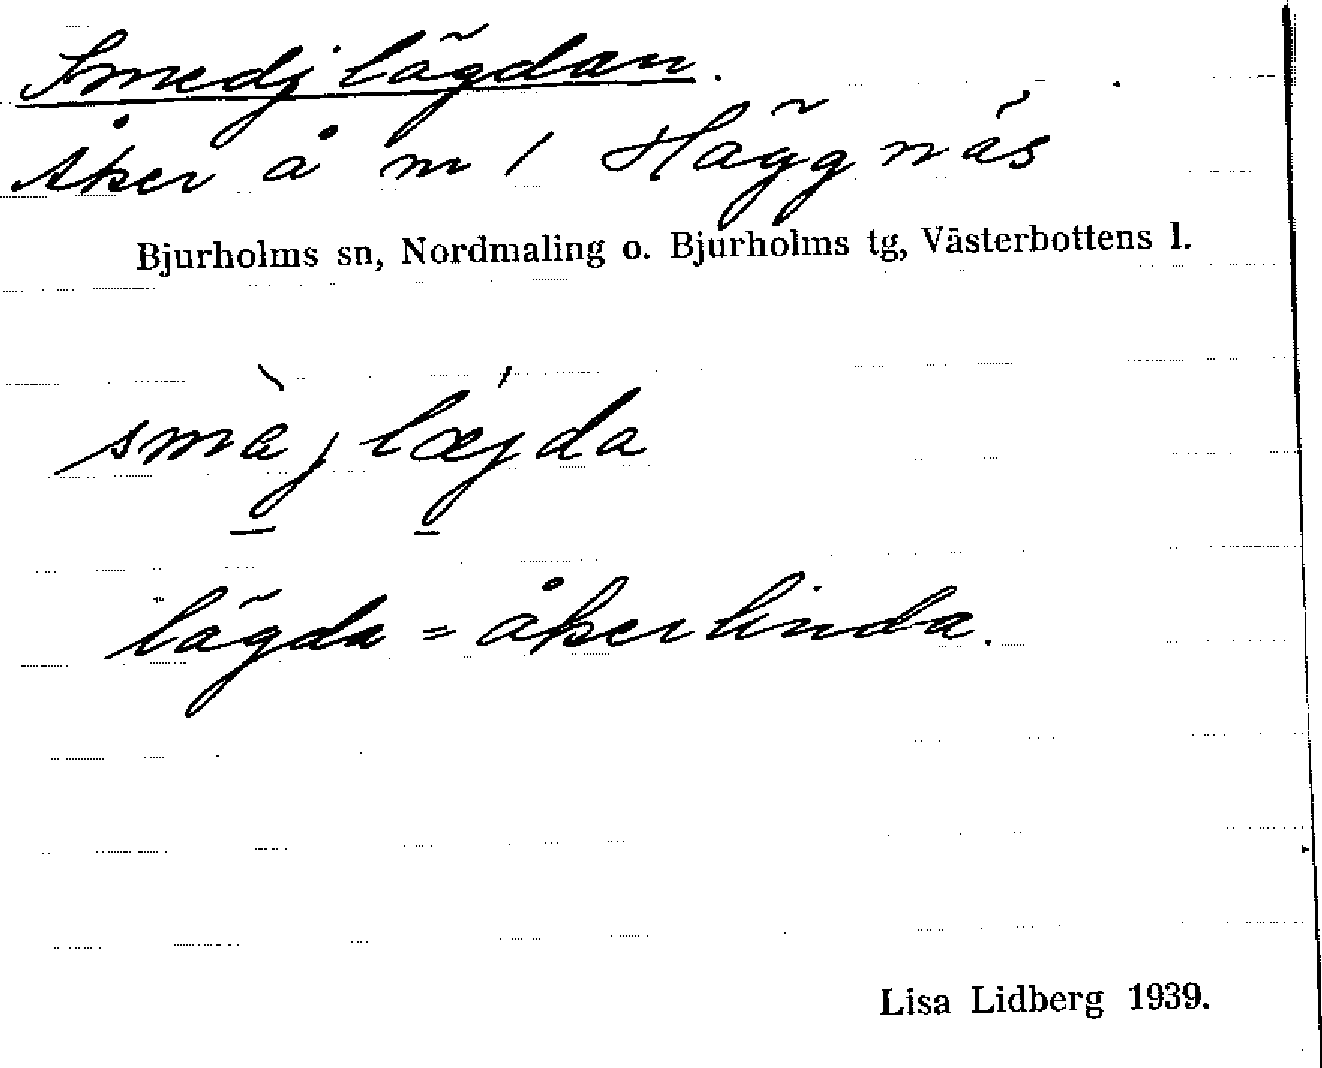 Smedjlägdan.
Åker å m / Häggnäs
Bjurholms sn, Nordmaling o. Bjurholms tg, Västerbottens l.
smèjlæjda
lägda = åkerlinda.
Lisa Lidberg 1939.